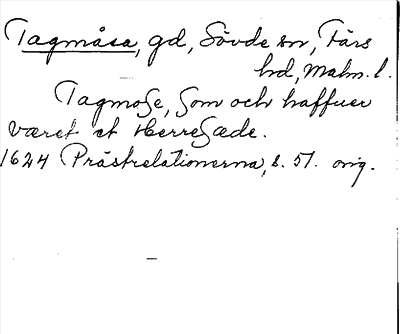 Tagmåsa, gd, Sövde sn, Färs
hd, Malm. l.
Tagmose, som och haffuer
været et Herresæde.
1624 Prästrelationerna, s. 51. orig.